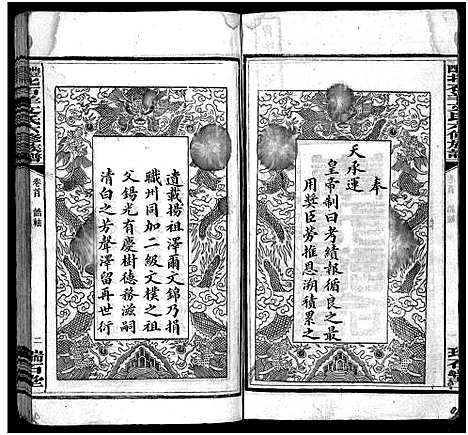 奉
天承運
皇帝制曰考績報循良之最
用奬臣勞推恩溯積累之
遺載揚祖澤爾文錦乃捐
職州同加二級文樸之祖
父錫光有慶樹德務滋嗣
清白之芳聲澤留再世衍
卷首
誥軸
二